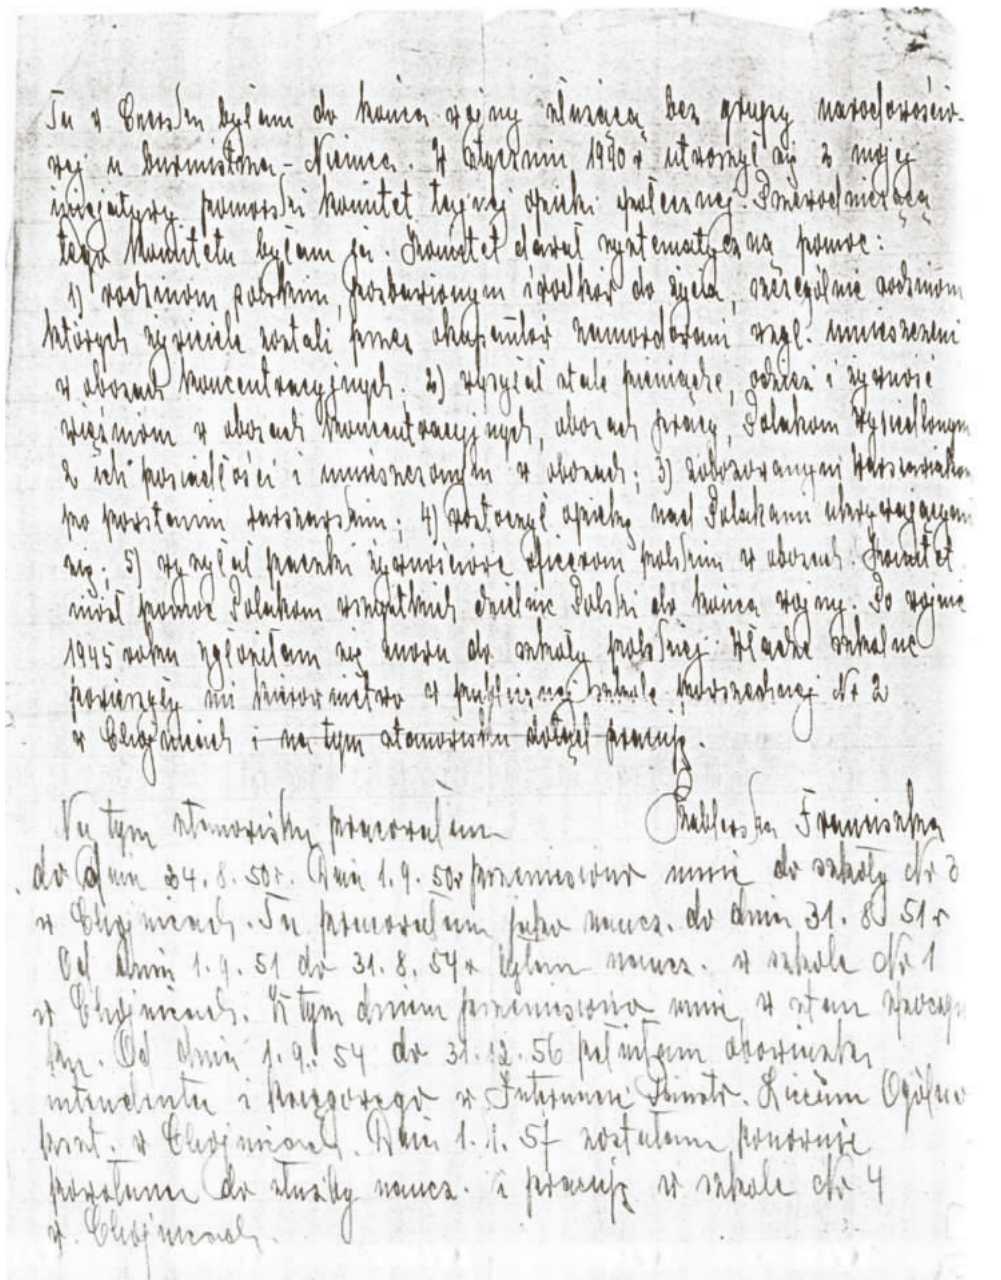 Tu w Czersku byłam do końca wojny służącą bez grupy narodowościo-
wej u burmistrza - Niemca. W styczniu 1940 r utworzył się z mojej
inicjatywy pomorski komitet tajnej opieki społecznej. Przewodniczącą
tego komitetu byłam ja. Komitet dawał systematyczną pomoc:
1) rodzinom polskim, pozbawionym środków do życia, szczególnie rodzinom
których żywiciele zostali przez okupantów zamordowani wzgl. umieszczeni
w obozach koncentracyjnych. 2) wysyłał stale pieniądze, odzież i żywność
więźniom w obozach koncentracyjnych, obozach pracy, Polakom wysiedlonym
z ich posiadłości i umieszczonym w obozach; 3)
po powstaniu warszawskim; 4) roztoczył opiekę nad Polakami ukrywającymi
się; 5) wysyłał paczki żywnościowe oficerom polskim w obozach. Komitet
niósł pomoc Polakom wszystkich dzielnic Polski do końca wojny. Po wojnie
1945 roku zgłosiłam się znowu do szkoły polskiej. Władze szkolne
powierzyły mi kierownictwo w publicznej szkole powszechnej Nr 2
w Chojnicach i na tym stanowisku dotąd pracuję.
Franciszka
Na tym stanowisku pracowałam
do dnia 8.50r. Dnia 1.9.50r przeniesiono mnie do szkoły Nr 3
w Chojnicach. Tu pracowałam jako naucz. do dnia 31.8 51 r
Od dnia 1.9.51 do 31.8.54 r byłam naucz. w szkole Nr 1
w Chojnicach. Z tym dniem przeniesiono mnie w stan spoczyn
ku. Od dnia 1.9.54 do 31.12.56 pełniłam obowiązki
intendenta i księgowego w Internacie Państ. Liceum Ogólno
kształc. w Chojnicach. Dnia 1.1.57 zostałam ponownie
powołana do służby naucz. i pracuję w szkole Nr 4
w Chojnicach.